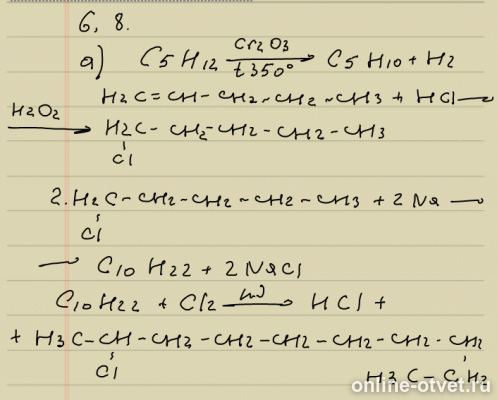 6, 8.
a) C5H12 Cr2O3 t 350° → C5H10 + H2
H2C = CH - CH2 - CH2 - CH3 + HCl —
H2O2 → H2C - CH2 - CH2 - CH2 - CH3
Cl
2. H2C - CH2 - CH2 - CH2 - CH3 + 2 Na —
Cl
— C10H22 + 2 NaCl
C10H22 + Cl2 hν → HCl +
+ H3C - CH - CH2 - CH2 - CH2 - CH2 - CH2 - CH2
Cl H3C - CH2
online-otvet.ru